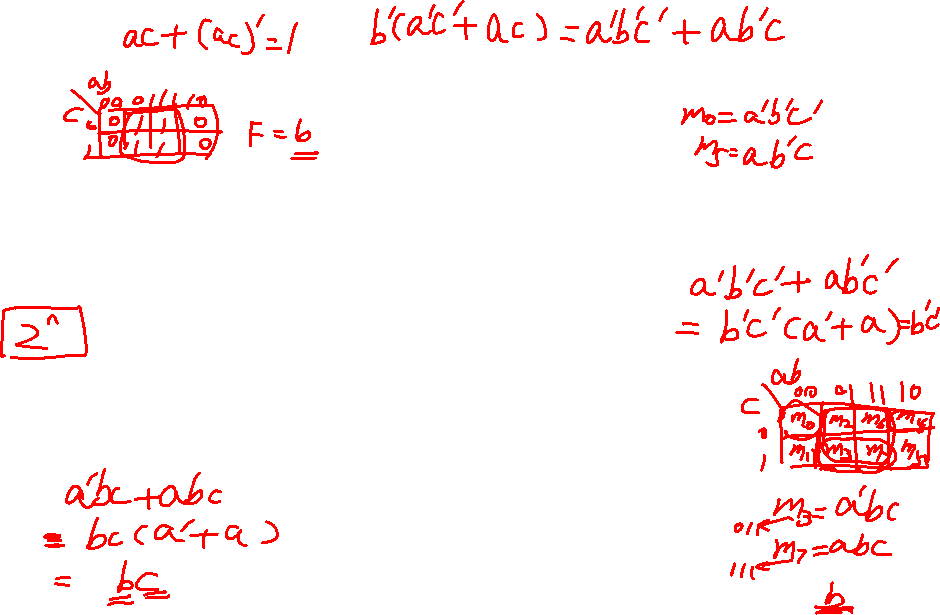 ac + (ac)' = 1
b'(a'c' + ac) = a'b'c' + ab'c
ab
00 01 11 10
c
0 0 1 1 0
1 0 1 1 0
F = b
m0 = a'b'c'
m5 = ab'c
2^n
a'b'c' + ab'c'
= b'c'(a' + a) = b'c'
ab
00 01 11 10
c
0 m0 m2 m6 m4
1 m1 m3 m7 m5
a'bc + abc
= bc(a' + a)
= bc
011 ← m3 = a'bc
111 ← m7 = abc
b